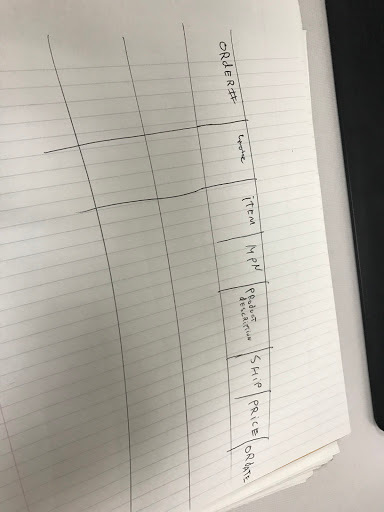 ORDER# STORE ITEM MPN PRODUCT DESCRIPTION SHIP PRICE ORDATE